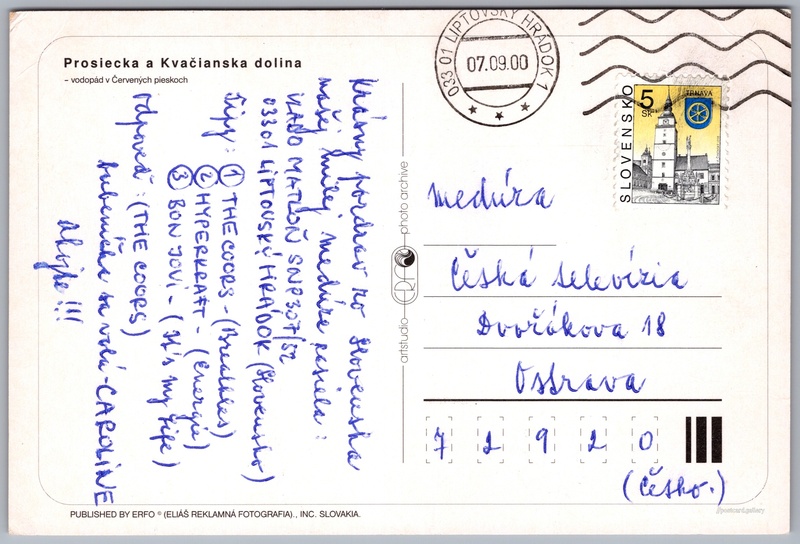 Prosiecka a Kvačianska dolina
– vodopád v Červených pieskoch
Krásny pozdrav zo Slovenska
našej milej medúze posiela:
VLADO MATLOŇ SNP 307/52
03301 LIPTOVSKÝ HRÁDOK (Slovensko)
Tipy: ① THE COORS - (Breathles)
② HYPERKRAFT - (Energie)
③ BON JOVI - (It's my life)
Odpoveď: (THE COORS)
bubeníčka sa volá - CAROLINE
Ahojte!!!
artstudio ERFO photo archive
033 01 LIPTOVSKÝ HRÁDOK 1
07.09.00
SLOVENSKO
5 SK
TRNAVA
medúza
Česká televízia
Dvořákova 18
Ostrava
7 2 9 2 0
(Česko.)
PUBLISHED BY ERFO © (ELIÁŠ REKLAMNÁ FOTOGRAFIA)., INC. SLOVAKIA.